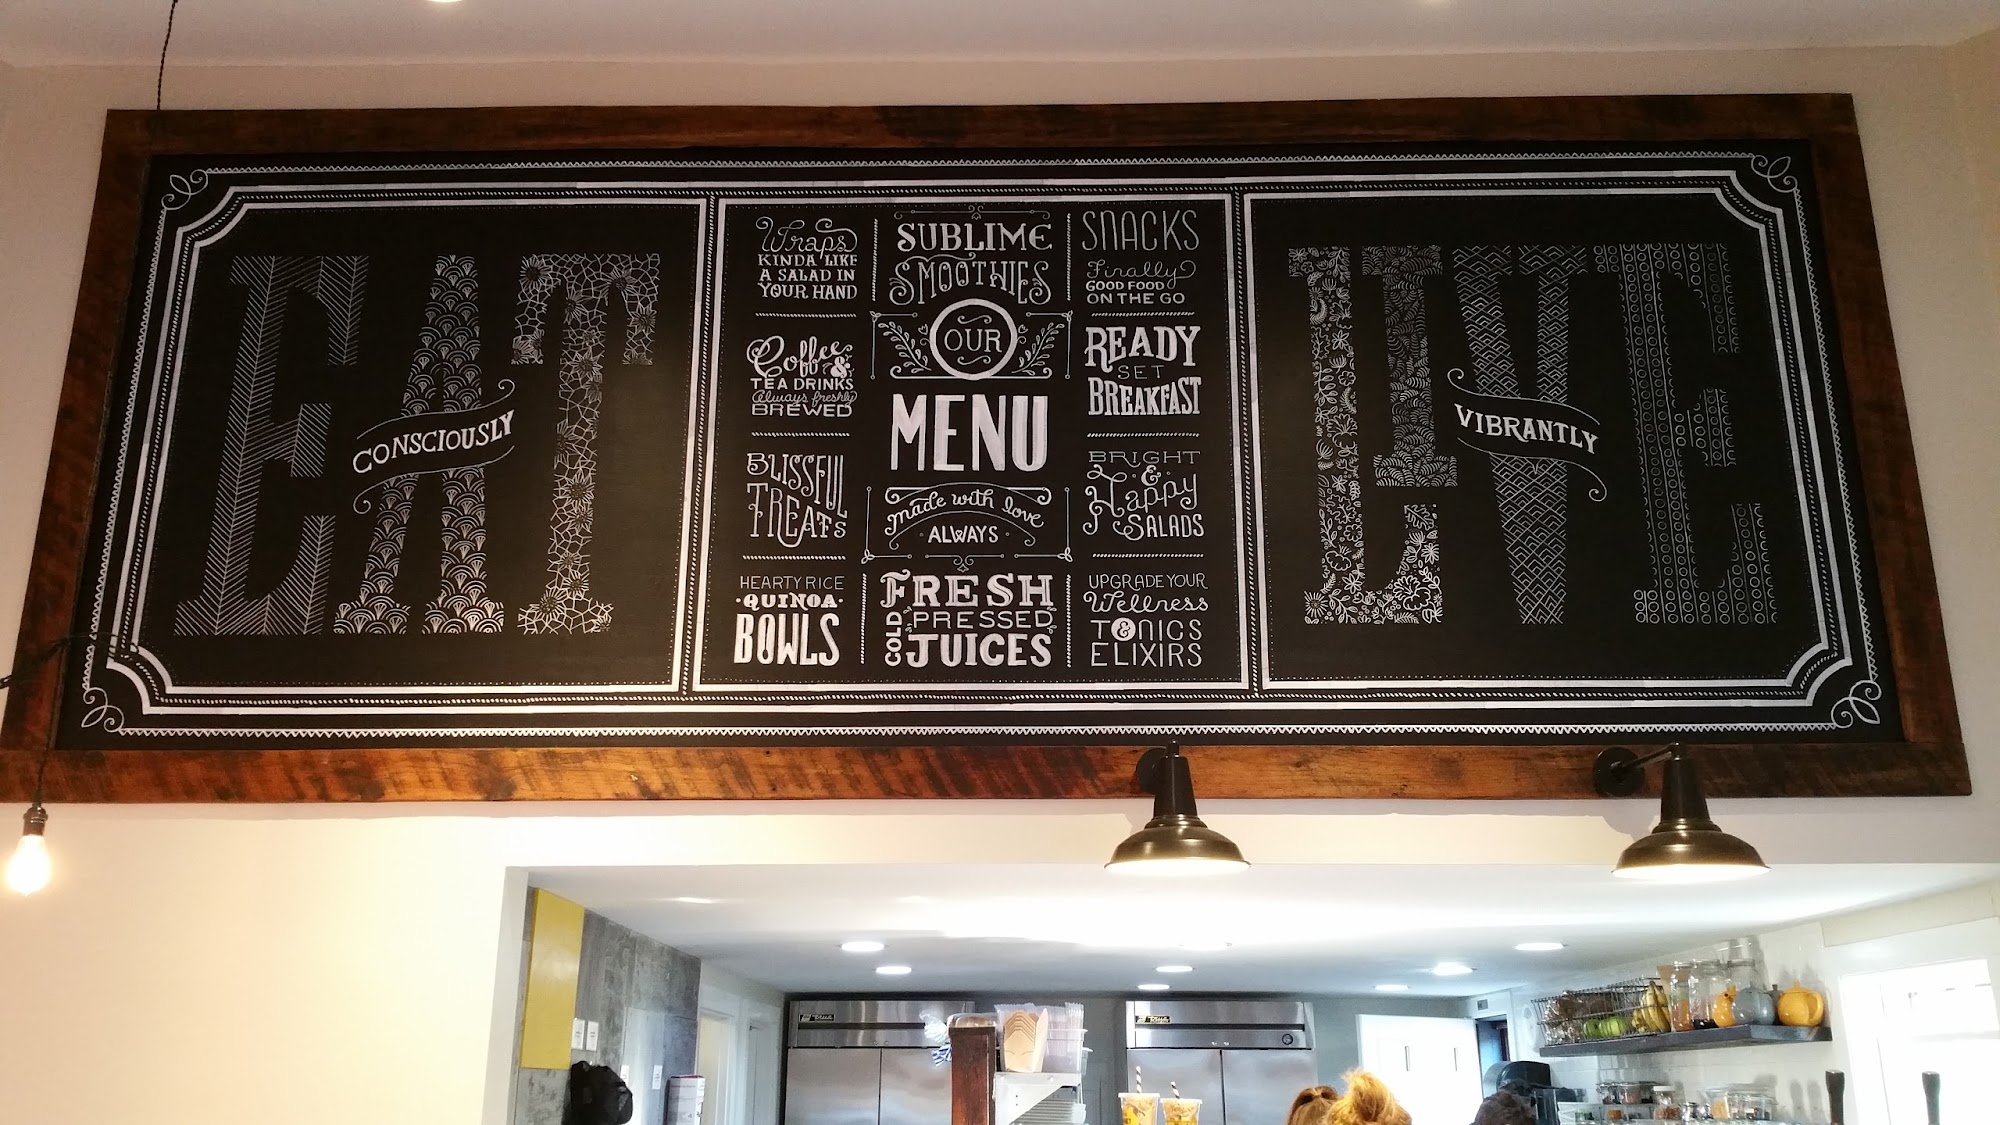 EAT
CONSCIOUSLY
Wraps
KINDA LIKE
A SALAD IN
YOUR HAND
Coffee &
TEA DRINKS
Always freshly
BREWED
BLISSFUL
TREATS
HEARTY RICE
·QUINOA·
BOWLS
SUBLIME
SMOOTHIES
OUR
MENU
made with love
·ALWAYS·
FRESH
COLD PRESSED
JUICES
SNACKS
Finally
GOOD FOOD
ON THE GO
READY
SET
BREAKFAST
BRIGHT
&
Happy
SALADS
UPGRADE YOUR
Wellness
TONICS
&
ELIXIRS
LIVE
VIBRANTLY
True
True